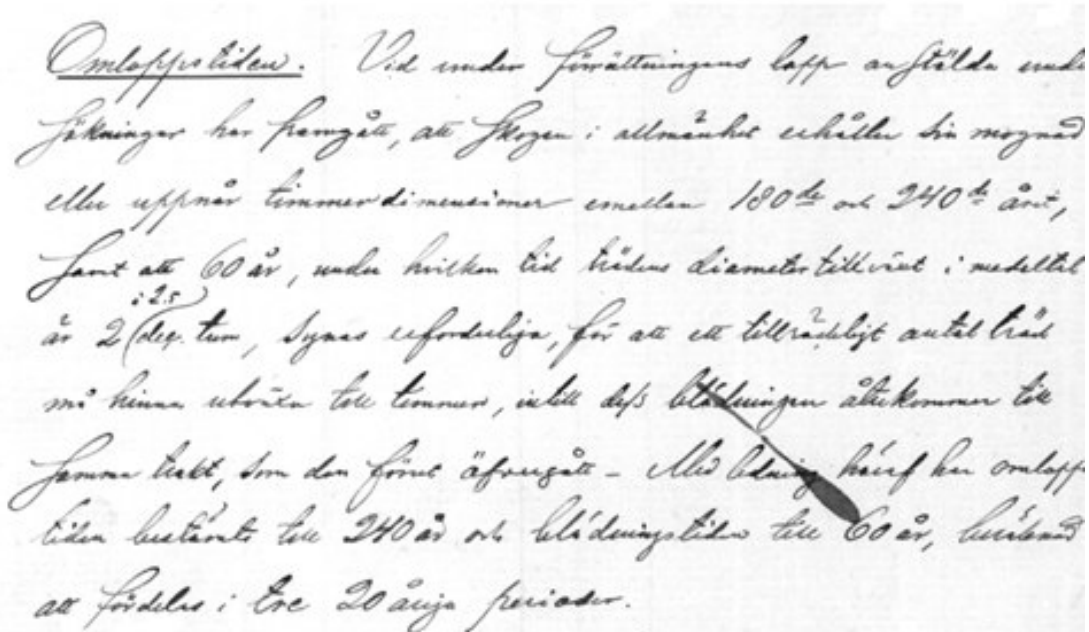 Omloppstiden. Vid under förrättningens lopp anställda under
sökningar har framgått, att skogen i allmänhet erhåller sin mognad
eller uppnår timmerdimensioner emellan 180de och 240de året,
samt att 60 år, under hvilken tid trädens diametertillväxt i medeltal
à 2.5
är 2 dec. tum, synas erforderliga, för att ett tillräckligt antal träd
må hinna utväxa till timmer, intill dess blädningen återkommer till
samma trakt, som den förut öfvergått – Med ledning häraf har omlopps
tiden bestämts till 240 år och blädningstiden till 60 år, beräknad
att fördelas i tre 20 åriga perioder.